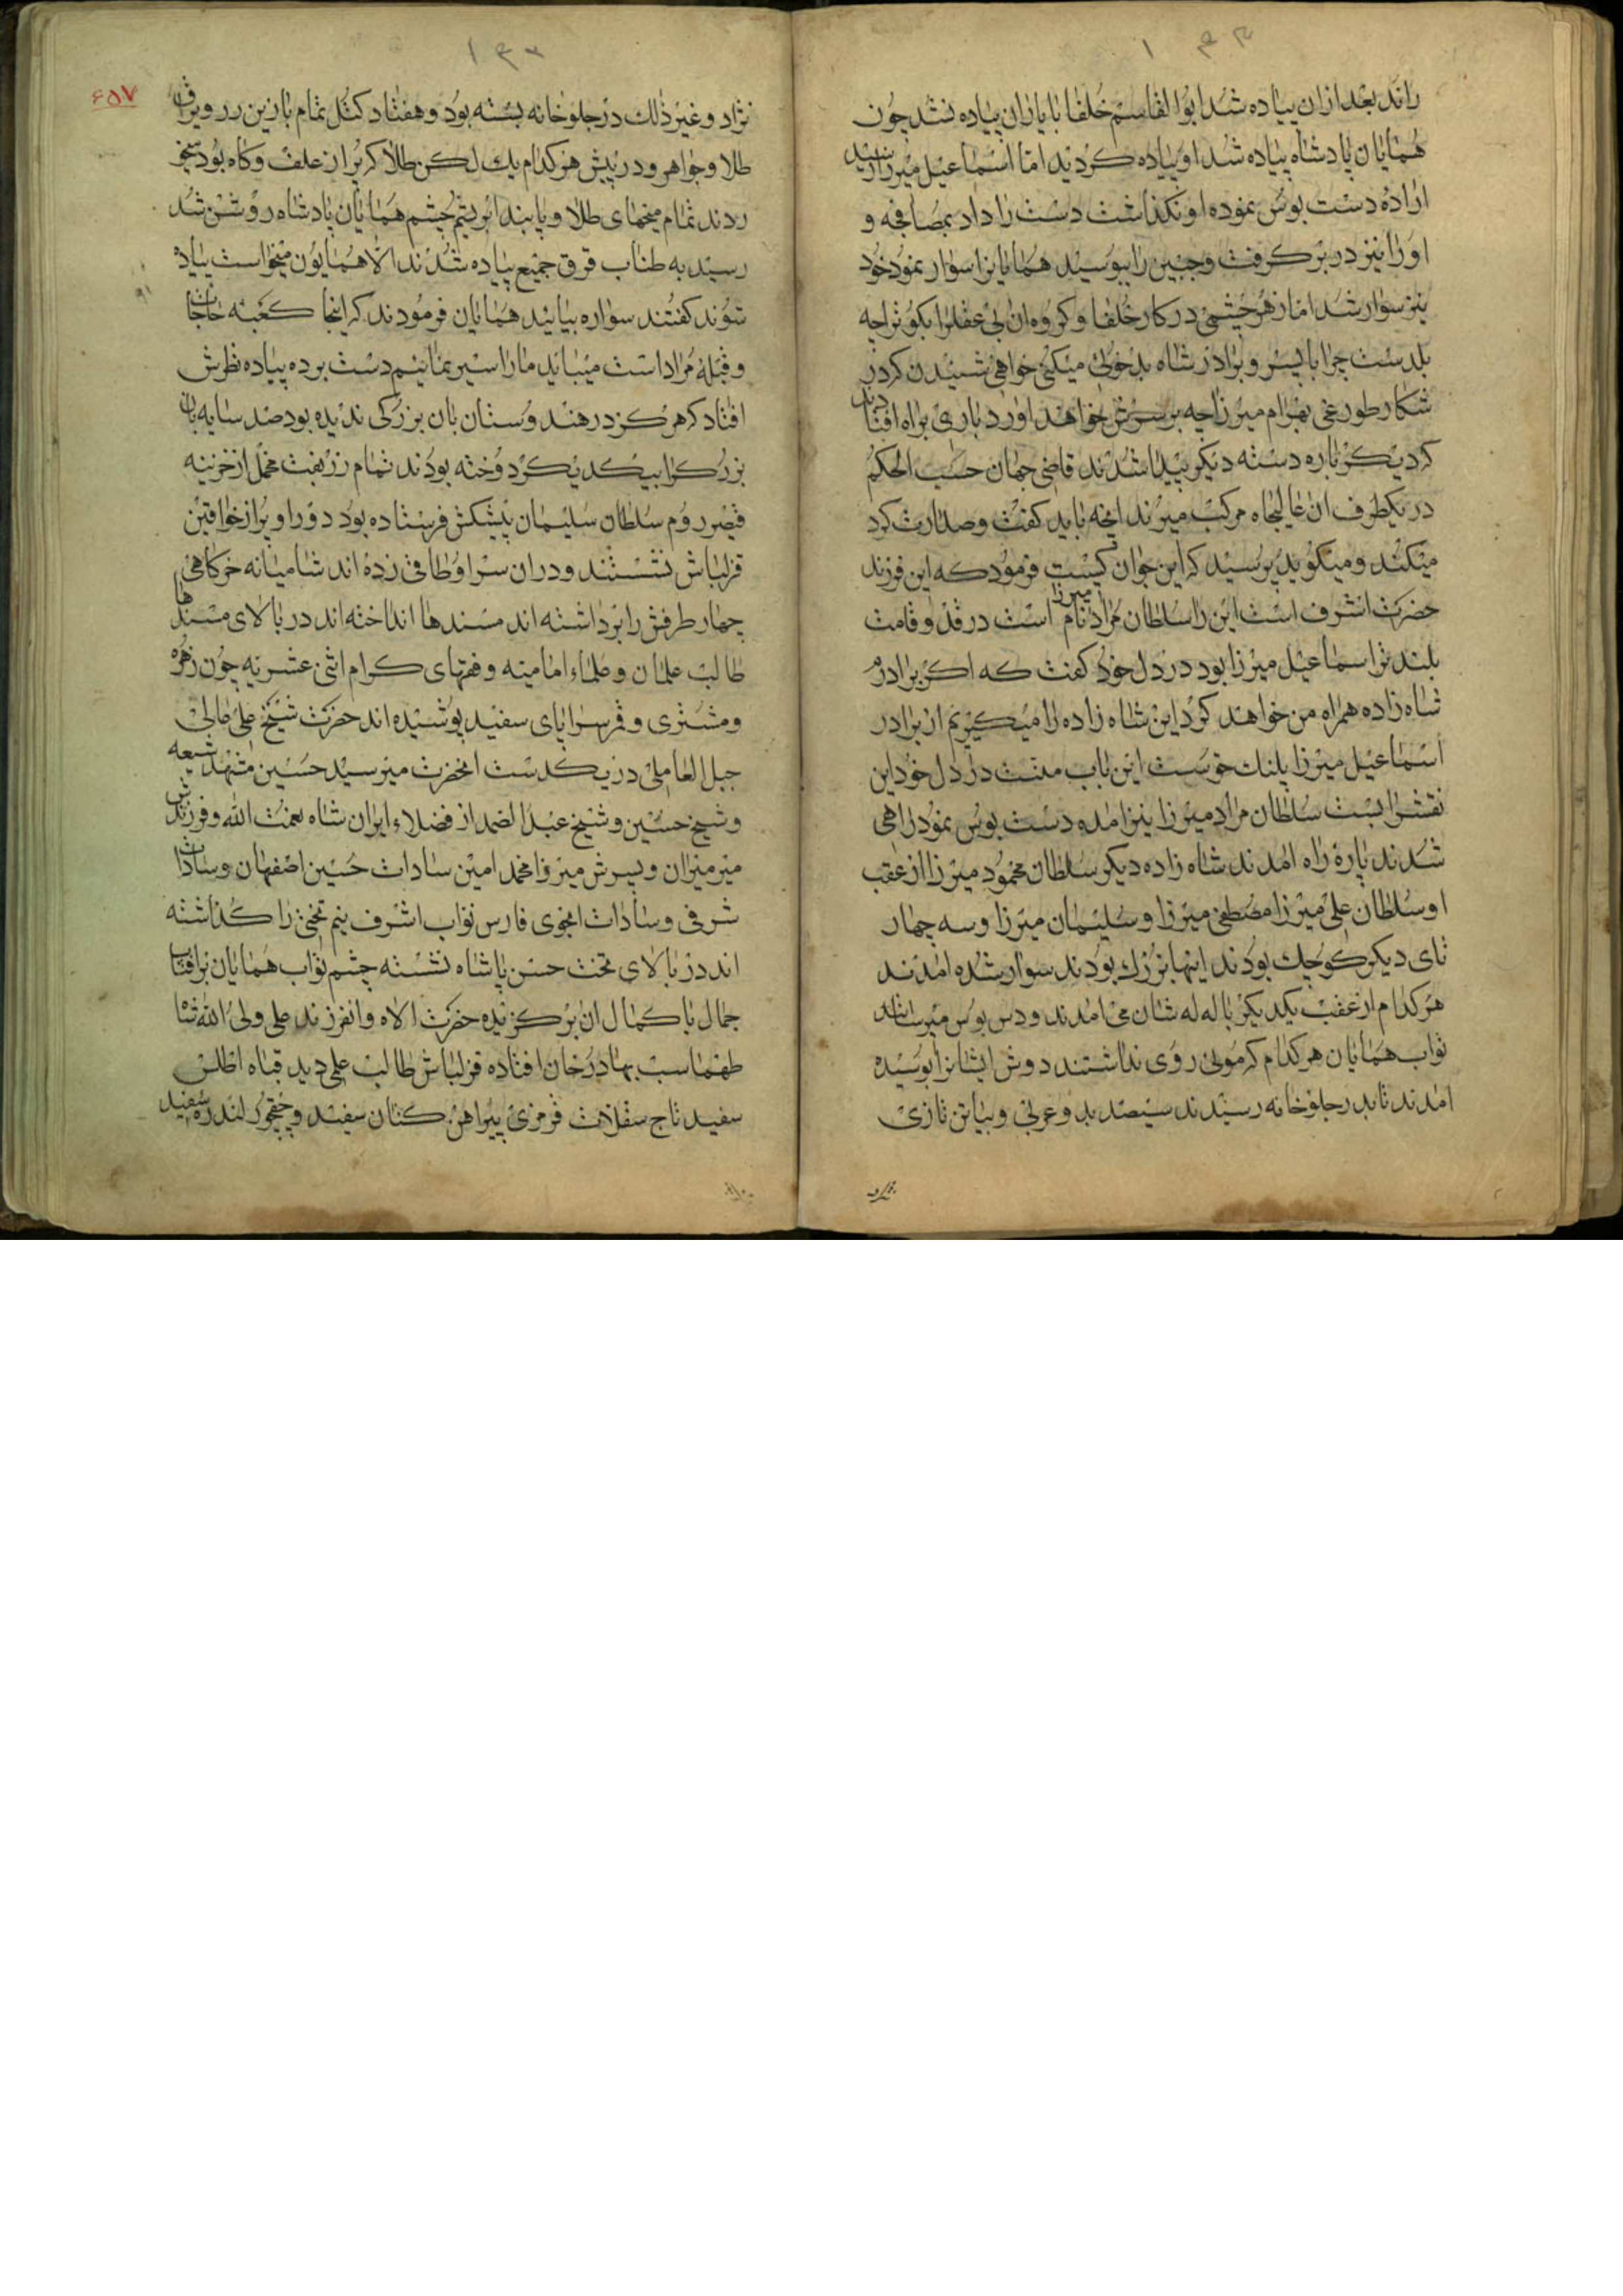 ۱۳۳
راند بعد ازان پیاده شد ابوالقاسم خلفا با یاران پیاده نشد چون
همایان پادشاه پیاده شد او پیاده کردید اما اسماعیل میرزا رسید
ارادهٔ دست بوس نموده او نکذاشت دست را داد بمصافحه و
او را نیز در بر کرفت و جبین را ببوسید همایانرا سوار نمود خود
نیز سوار شد اما زهر چشمی در کار خلفا و کروه ان بی عقلرا بکو ترا چه
بلدست چرا با پسر و برادر شاه بدخوئی میکنی خواهی شنیدن که در
شکار طورغی بهرام میرزا چه بر سرش خواهد اورد باری براه افتادند
که دیکر باره دسته دیکر پیدا شدند قاضی جهان حسب الحکم
در یکطرف ان عالیجاه مرکب میراند انچه باید کفت و صدارت کرد
میکند و میکوید پرسید که این جوان کیست فرمود که این فرزند
حضرت اشرف است این را سلطان مراد میرزا نام است در قد و قامت
بلند تر اسماعیل میرزا بود در دل خود کفت که اکر برادر
شاه زاده همراه من خواهند کرد این شاه زاده را میکیرم از برادر
اسماعیل میرزا پلنك خوست این باب منت در دل خود این
نقشرا بست سلطان مراد میرزا نیز امده دست بوس نمود راهی
شدند پارهٔ راه امدند شاه زاده دیکر سلطان محمود میرزا از عقب
او سلطان علی میرزا مصطفی میرزا و سلیمان میرزا و سه چهار
تای دیکر کوچك بودند اینها بزرك بودند سوار شده امدند
هر کدام از عقب یکدیکر با له له شان می امدند و دس بوس میرساند
نواب همایان هر کدام که موئی روی نداشتند دوش ایشانرا بوسیده
امدند تا بدر جلوخانه رسیدند سیصد بدو عربی و بیاتی تازی
۱۳۳
۶۵۷
نژاد و غیر ذلك در جلوخانه بسته بود و هفتاد کتل تمام با زین زر و یراق
طلا و جواهر و در پیش هر کدام یك لکن طلا که پر از علف و کاه بود میخو
ردند تمام میخهای طلا و پابند ابریشم چشم همایان پادشاه روشن شد
رسید به طناب قرق جمیع پیاده شدند الا همایون میخواست پیاده
شوند کفتند سواره بیایید همایان فرمودند که اینجا کعبه حاجات
و قبلهٔ مرادات میباید ما را سیر نمائیم دست برده پیاده نظرش
افتاد که هرکز در هند وستان بان بزرکی ندیده بود صد سایه بان
بزرك را بیکدیکر دوخته بودند تمام زربفت مخمل از خزینه
قیصر روم سلطان سلیمان پیشکش فرستاده بود دور او پر از خوافین
قزلباش نشستند و دران سرا وطاقی زده اند شامیانه خرکاهی
چهار طرفش را برداشته اند مسندها انداخته اند در بالای مسندها
طالب علمان و علماء امامیه و فقهای کرام اثنی عشریه چون زهره
و مشتری و قمر سراپای سفید پوشیده اند حضرت شیخ علی عالی
جبل العاملی در یکدست انحضرت میر سید حسین مجتهد شیعه
و شیخ حسین و شیخ عبد الصمد از فضلاء ایران شاه نعمت الله و فرزندش
میر میران و پسرش میرزا محمد امین سادات حسین اصفهان و سادات
شرفی و سادات انجوی فارس نواب اشرف نیم تختی را کذاشته
اند در بالای تخت حسن پاشاه نشسته چشم نواب همایان بر افتاب
جمال با کمال ان برکزیده حضرت الاه و انفرزند علی ولی الله شاه
طهماسب بهادرخان افتاده قزلباش طالب علی دید قباه اطلس
سفید تاج سقلات قرمزی پیراهن کتان سفید و چقچور لندره سفید